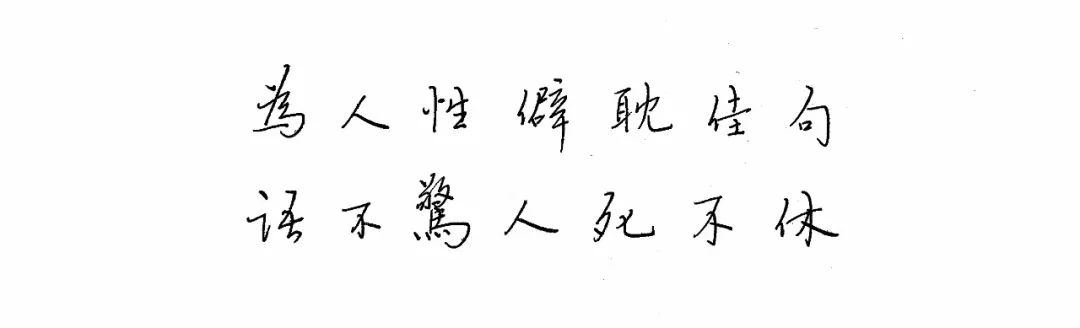 為人性僻耽佳句
语不驚人死不休